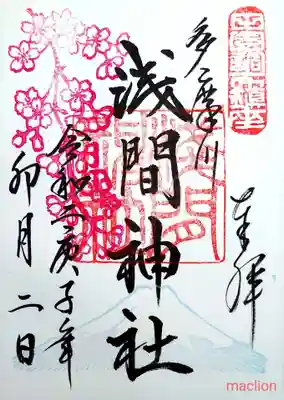 奉拝
多摩川
浅間神社
令和二庚子年
卯月 二日
maclion